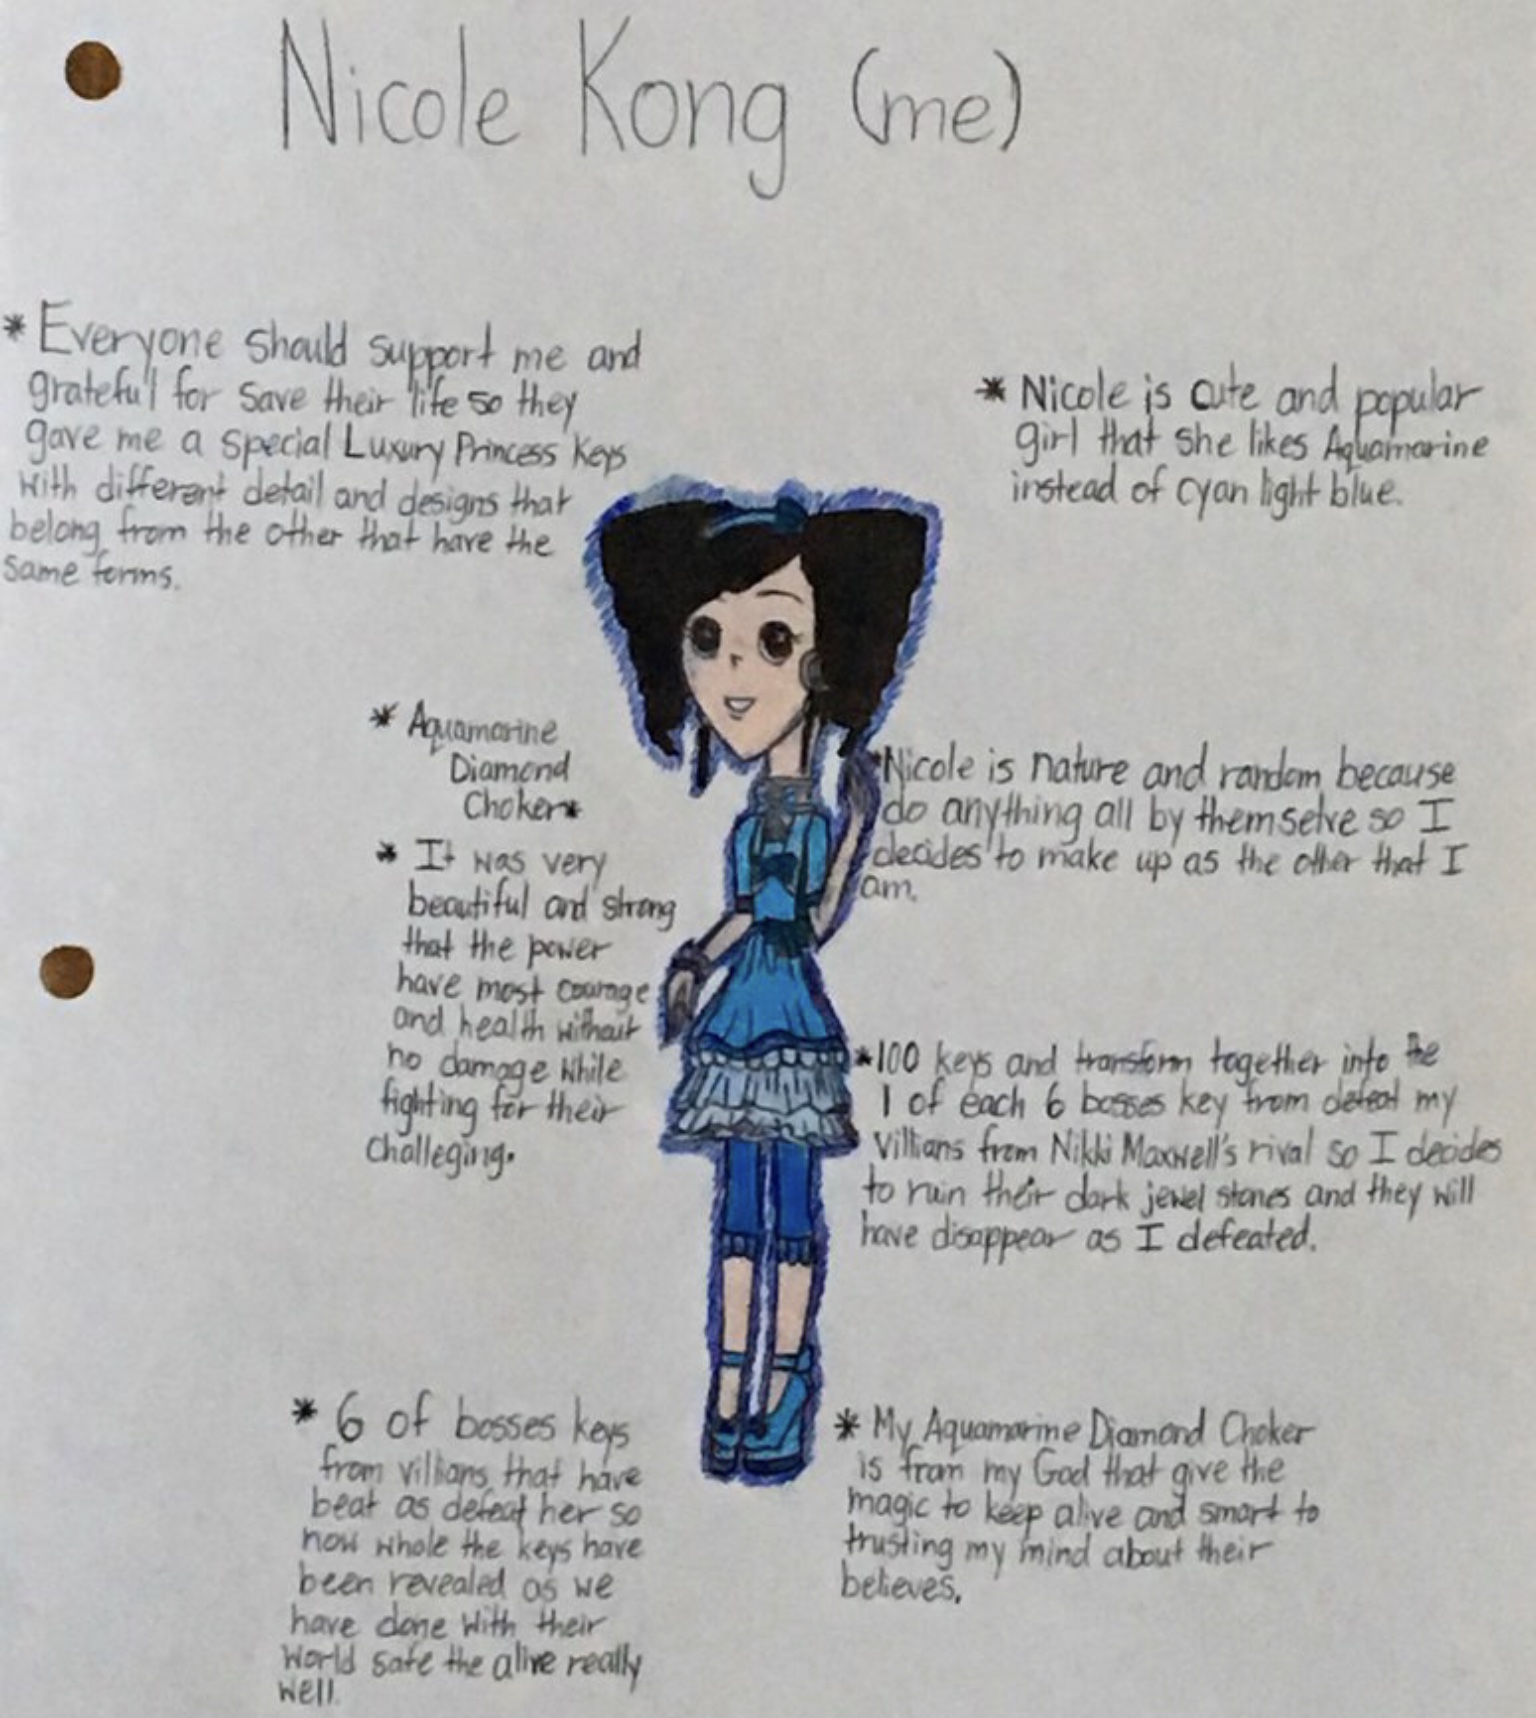 Nicole Kong (me)
* Everyone should support me and
grateful for save their life so they
gave me a special Luxury Princess Keys
with different detail and designs that
belong from the other that have the
same forms.
* Nicole is cute and popular
girl that she likes Aquamarine
instead of cyan light blue.
* Aquamarine
Diamond
Choker*
* It was very
beautiful and strong
that the power
have most courage
and health without
no damage while
fighting for their
challeging.
*Nicole is nature and random because
do anything all by themselve so I
decides to make up as the other that I
am.
*100 keys and transform together into the
1 of each 6 bosses key from defeat my
villians from Nikki Maxwell's rival so I decides
to ruin their dark jewel stones and they will
have disappear as I defeated.
* 6 of bosses keys
from villians that have
beat as defeat her so
now whole the keys have
been revealed as we
have done with their
world safe the alive really
well.
* My Aquamarine Diamond Choker
is from my God that give the
magic to keep alive and smart to
trusting my mind about their
believes.